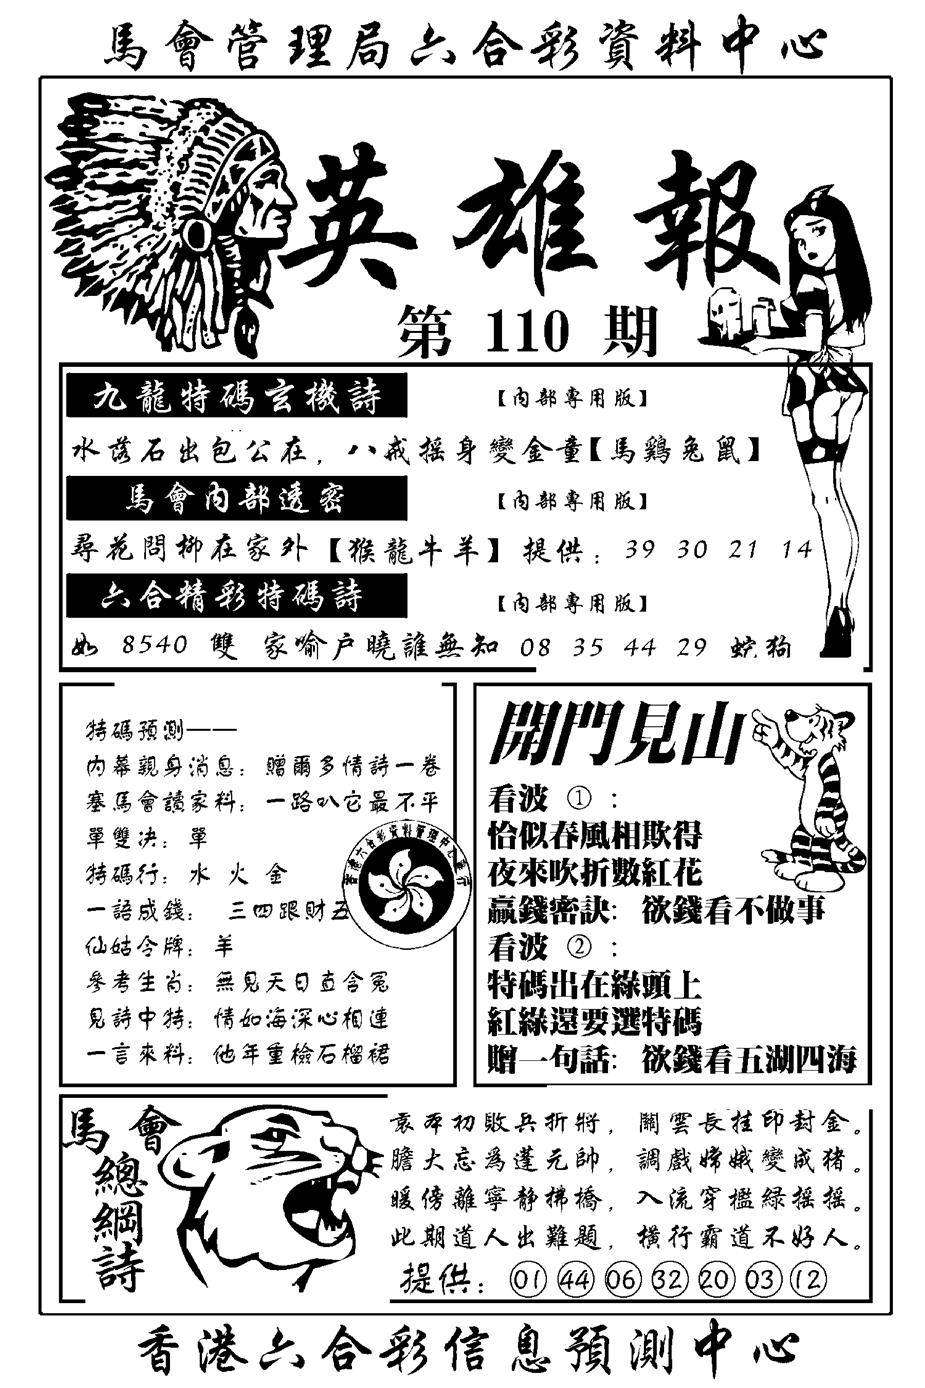 馬會管理局六合彩資料中心
英雄報
第 110 期
九龍特碼玄機詩 【內部專用版】
水落石出包公在，八戒摇身變金童【馬鷄兔鼠】
馬會內部透密 【內部專用版】
尋花問柳在家外【猴龍牛羊】提供：39 30 21 14
六合精彩特碼詩 【內部專用版】
如 8540 雙 家喻户曉誰無知 08 35 44 29 蛇狗
特碼預測——
內幕親身消息：贈爾多情詩一卷
塞馬會讀家料：一路叭它最不平
單雙决：單
特碼行：水 火 金
一語成錢：三四跟財五
仙姑令牌：羊
參考生肖：無見天日直含冤
見詩中特：情如海深心相連
一言來料：他年重檢石榴裙
開門見山
看波 ①：
恰似春風相欺得
夜來吹折數紅花
贏錢密訣：欲錢看不做事
看波 ②：
特碼出在綠頭上
紅綠還要選特碼
贈一句話：欲錢看五湖四海
馬會
總綱詩
哀平初敗兵折將，關雲長挂印封金。
膽大忘爲蓬元帥，調戲嫦娥變成猪。
暖傍離寧静拂橋，入流穿檻綠摇摇。
此期道人出難題，横行霸道不好人。
提供：01 44 06 32 20 03 12
香港六合彩信息預測中心